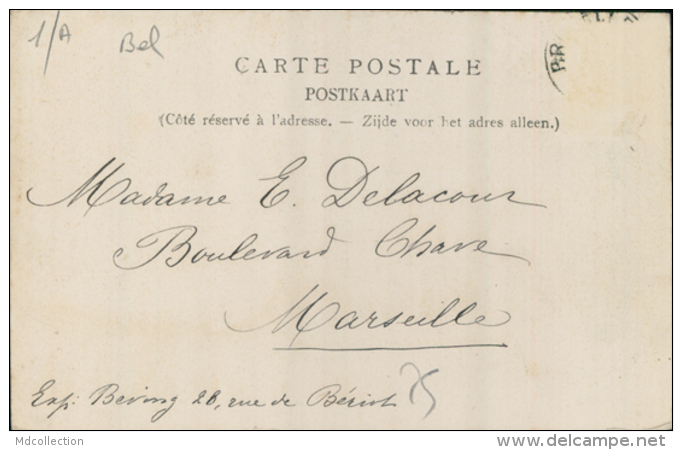 1/A
Bel
CARTE POSTALE
POSTKAART
(Côté réservé à l'adresse. — Zijde voor het adres alleen.)
Madame E. Delacour
Boulevard Chave
Marseille
Exp: Beving 28, rue de Bériot
75
Mdcollection
mgp50.delcampe.net